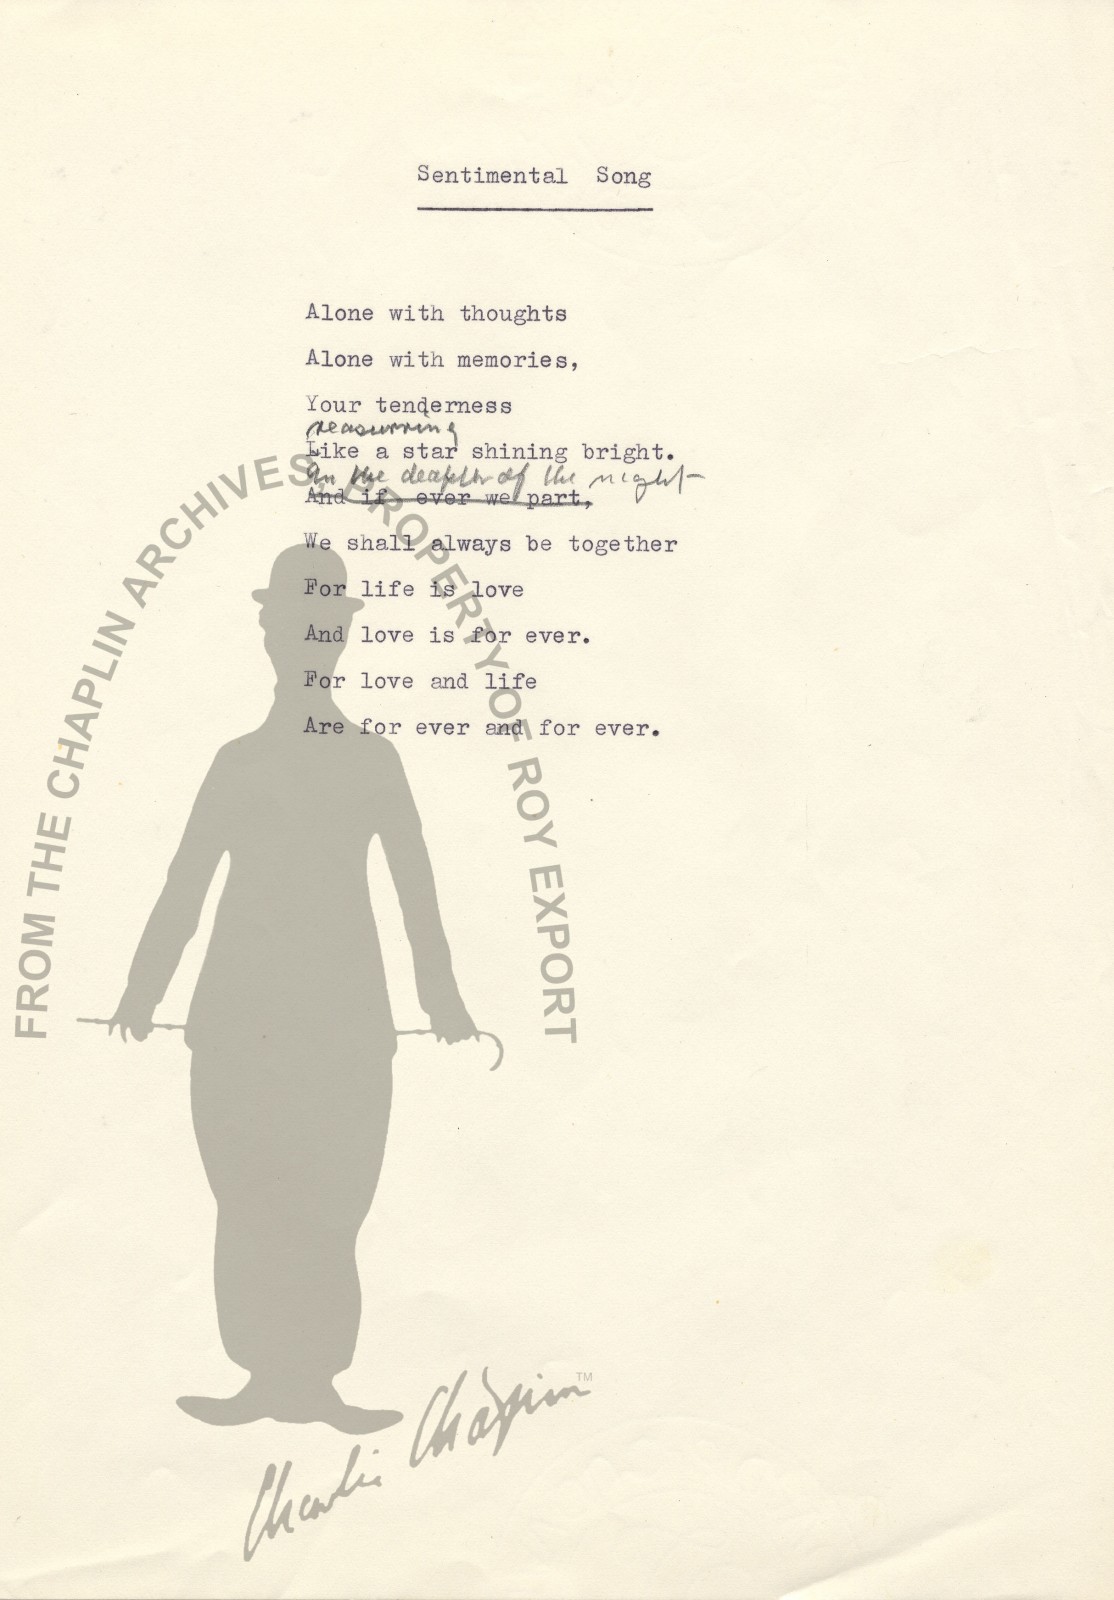 Sentimental Song
Alone with thoughts
Alone with memories,
Your tenderness
reasurring
Like a star shining bright.
In the deapth of the night
And if ever we part,
We shall always be together
For life is love
And love is for ever.
For love and life
Are for ever and for ever.
FROM THE CHAPLIN ARCHIVES, PROPERTY OF ROY EXPORT
Charlie Chaplin TM